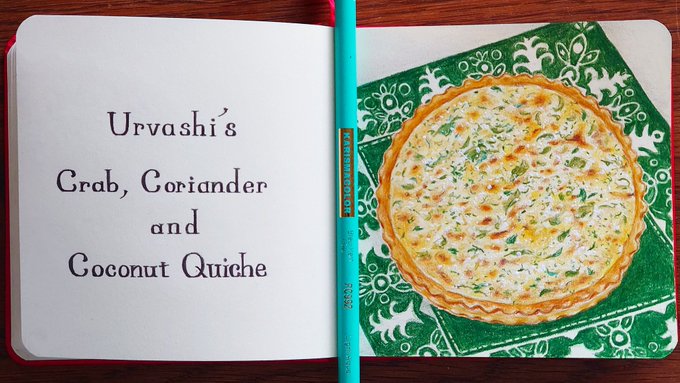 Urvashi's
Crab, Coriander
and
Coconut Quiche
KARISMACOLOR